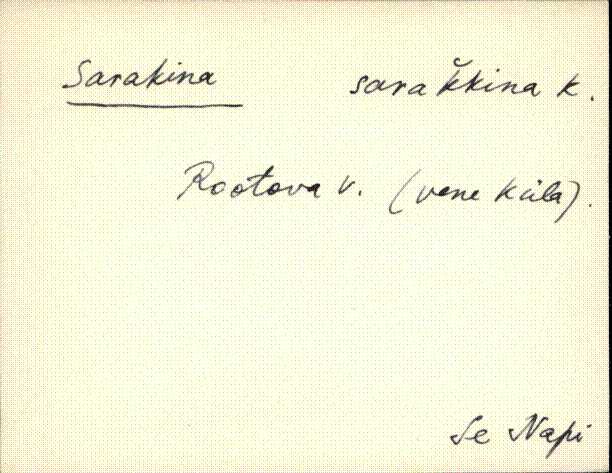 Sarakina sarak̆kina k.
Rootova v. (vene küla).
Se Napi